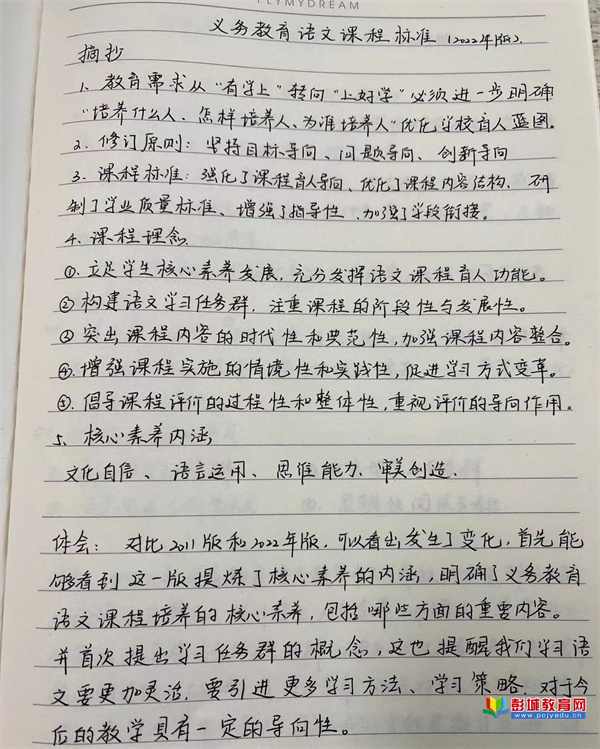 FLYMYDREAM
义务教育语文课程标准（2022年版）.
摘抄
1、教育需求从“有学上”转向“上好学”必须进一步明确
“培养什么人、怎样培养人、为谁培养人”优化学校育人蓝图。
2、修订原则：坚持目标导向、问题导向、创新导向
3、课程标准：强化了课程育人导向、优化了课程内容结构、研
制了学业质量标准、增强了指导性、加强了学段衔接。
4、课程理念.
①.立足学生核心素养发展，充分发挥语文课程育人功能。
②构建语文学习任务群，注重课程的阶段性与发展性。
③突出课程内容的时代性和典范性，加强课程内容整合。
④.增强课程实施的情境性和实践性，促进学习方式变革。
⑤.倡导课程评价的过程性和整体性，重视评价的导向作用。
5、核心素养内涵
文化自信、语言运用、思维能力、审美创造.
体会：对比2011版和2022年版，可以看出发生了变化，首先能
够看到这一版提炼了核心素养的内涵，明确了义务教育
语文课程培养的核心素养，包括哪些方面的重要内容。
并首次提出学习任务群的概念，这也提醒我们学习语
文要更加灵活，要引进更多学习方法、学习策略.对于今
后的教学具有一定的导向性。
彭城教育网
www.pcjyedu.cn